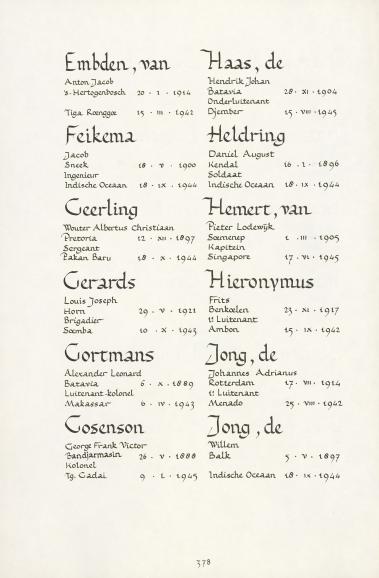 Embden, van
Anton Jacob
's-Hertogenbosch 20 · I · 1914
Tiga Roenggoe 15 · III · 1942
Feikema
Jacob
Sneek 18 · V · 1900
Ingenieur
Indische Oceaan 18 · IX · 1944
Geerling
Wouter Albertus Christiaan
Pretoria 12 · XII · 1897
Sergeant
Pakan Baru 18 · X · 1944
Gerards
Louis Joseph
Horn 29 · V · 1921
Brigadier
Soemba 10 · X · 1943
Gortmans
Alexander Leonard
Batavia 6 · X · 1889
Luitenant-kolonel
Makassar 6 · IV · 1943
Gosenson
George Frank Victor
Bandjarmasin 26 · V · 1888
Kolonel
Tg. Gadai 9 · I · 1945
Haas, de
Hendrik Johan
Batavia 28 · XI · 1904
Onderluitenant
Djember 15 · VIII · 1945
Heldring
Daniel August
Kendal 16 · I · 1896
Soldaat
Indische Oceaan 18 · IX · 1944
Hemert, van
Pieter Lodewijk
Soemenep 1 · III · 1905
Kapitein
Singapore 17 · VI · 1945
Hieronymus
Frits
Benkoelen 23 · XI · 1917
1e Luitenant
Ambon 15 · IX · 1942
Jong, de
Johannes Adrianus
Rotterdam 17 · VII · 1914
1e Luitenant
Menado 25 · VIII · 1942
Jong, de
Willem
Balk 5 · V · 1897
Indische Oceaan 18 · IX · 1944
378